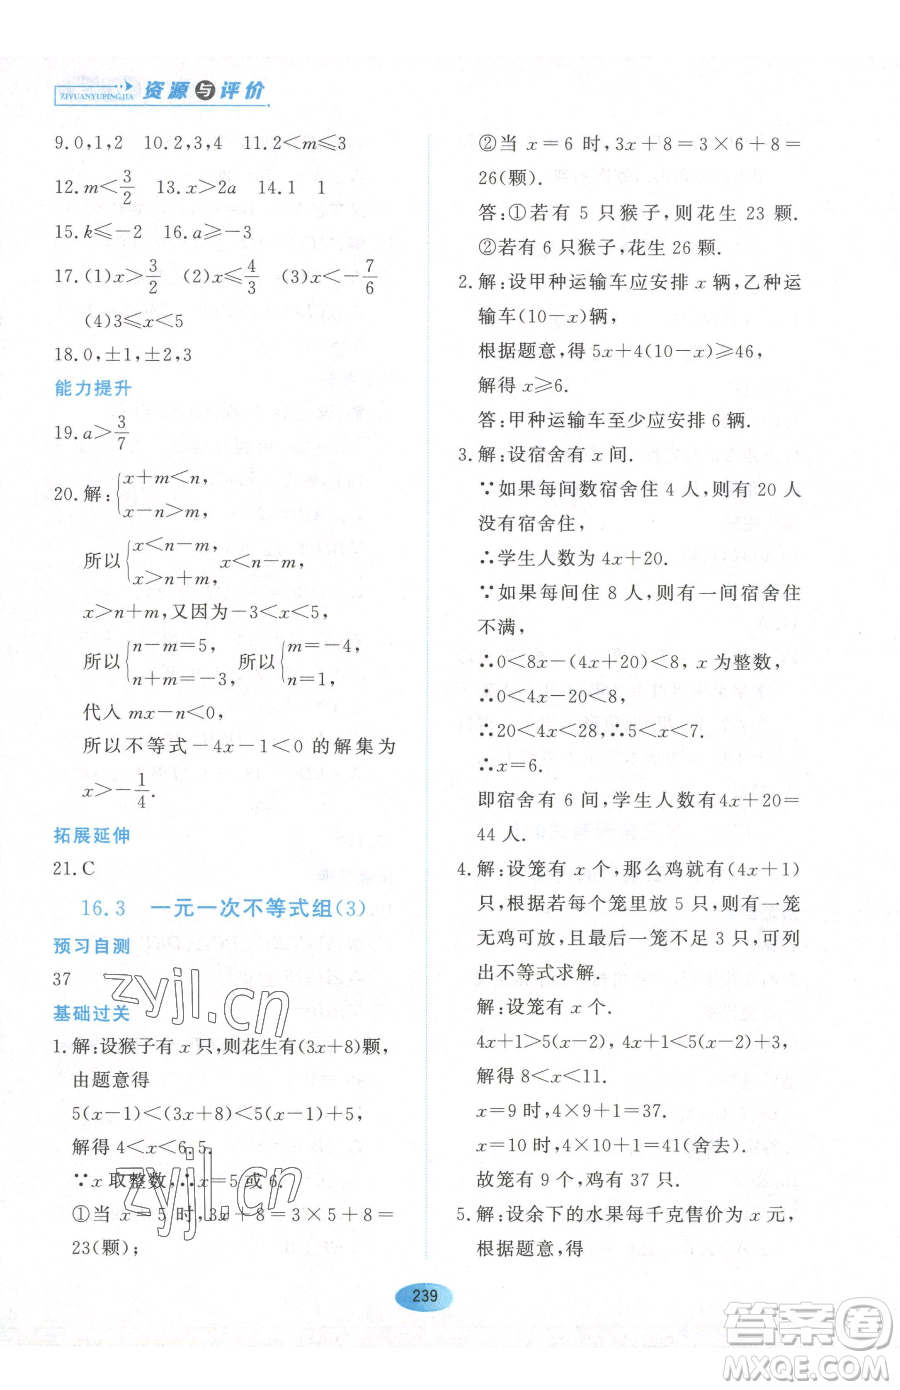 资源与评价
ZIYUANYUPINGJIA
9.0,1,2 10.2,3,4 11.2<m≤3
12.m<3/2 13.x>2a 14.1 1
15.k≤-2 16.a≥-3
17.(1)x>3/2 (2)x≤4/3 (3)x<-7/6
(4)3≤x<5
18.0,±1,±2,3
能力提升
19.a>3/7
20.解:{x+m<n,
x-n>m,
所以{x<n-m, x<n-m,
x>n+m,
x>n+m,又因为-3<x<5,
所以{n-m=5, 所以{m=-4,
n+m=-3, n=1,
代入 mx-n<0,
所以不等式-4x-1<0 的解集为
x>-1/4.
拓展延伸
21.C
16.3 一元一次不等式组(3)
预习自测
37
基础过关
1.解:设猴子有 x 只,则花生有(3x+8)颗,
由题意得
5(x-1)<(3x+8)<5(x-1)+5,
解得 4<x<6.5.
∵x 取整数,∴x=5或6.
①当 x=5 时,3x+8=3×5+8=
23(颗);
②当 x=6 时,3x+8=3×6+8=
26(颗).
答:①若有 5 只猴子,则花生 23 颗.
②若有 6 只猴子,花生 26 颗.
2.解:设甲种运输车应安排 x 辆,乙种运
输车(10-x)辆,
根据题意,得 5x+4(10-x)≥46,
解得 x≥6.
答:甲种运输车至少应安排 6 辆.
3.解:设宿舍有 x 间.
∵如果每间数宿舍住 4 人,则有 20 人
没有宿舍住,
∴学生人数为 4x+20.
∵如果每间住 8 人,则有一间宿舍住
不满,
∴0<8x-(4x+20)<8,x 为整数,
∴0<4x-20<8,
∴20<4x<28,∴5<x<7.
∴x=6.
即宿舍有 6 间,学生人数有4x+20=
44 人.
4.解:设笼有 x 个,那么鸡就有(4x+1)
只,根据若每个笼里放 5 只,则有一笼
无鸡可放,且最后一笼不足 3 只,可列
出不等式求解.
解:设笼有 x 个.
4x+1>5(x-2),4x+1<5(x-2)+3,
解得 8<x<11.
x=9 时,4×9+1=37.
x=10 时,4×10+1=41(舍去).
故笼有 9 个,鸡有 37 只.
5.解:设余下的水果每千克售价为 x 元,
根据题意,得
239
zyjl.cn
zyjl.cn
答案圈
MXQE.COM